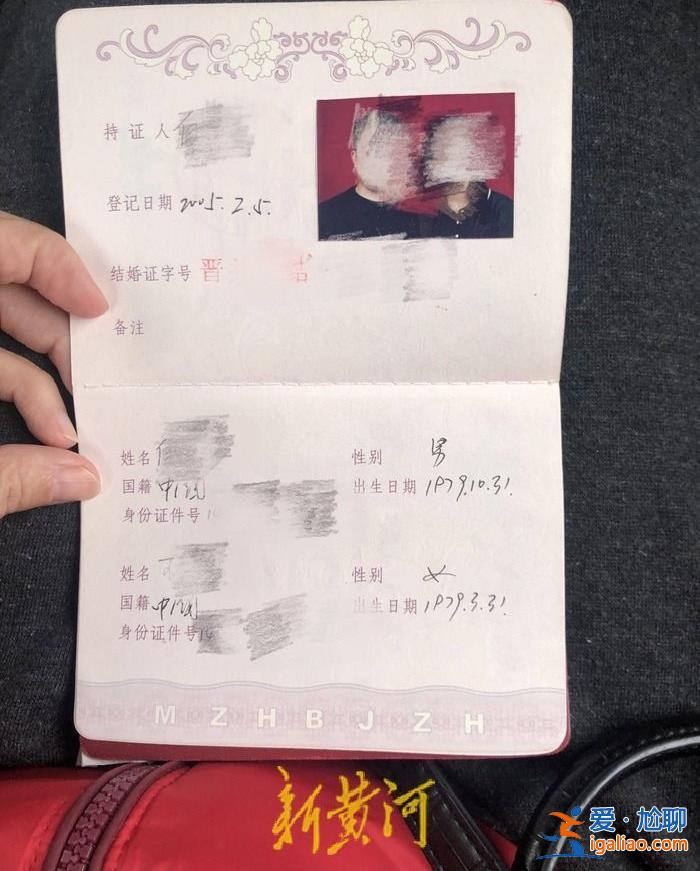 持证人
登记日期 2005.2.5.
结婚证字号 晋
备注
姓名 性别 男
国籍 中国 出生日期 1979.10.31.
身份证件号
姓名 性别 女
国籍 中国 出生日期 1979.3.31.
身份证件号
MZHBJZH
新黄河
爱·尬聊
igaliao.com